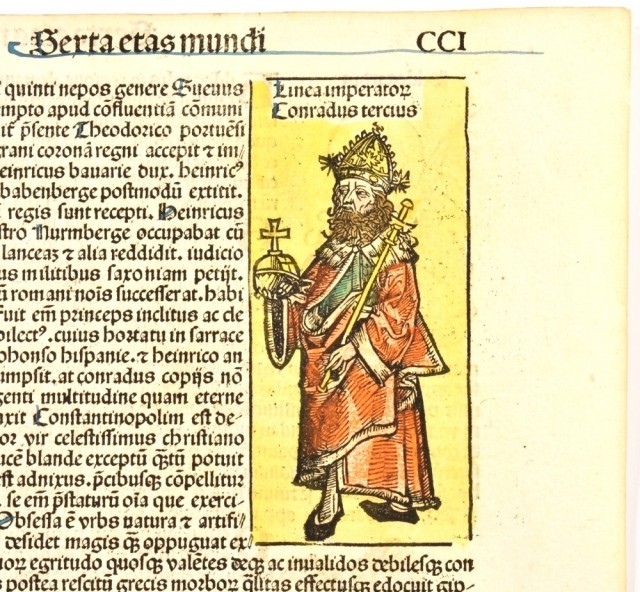 Sexta etas mundi CCI
Linea imperatoꝝ
Conradus tercius
quinti nepos genere Sueuus
mpto apud cōfluentiā cōmuni
it p̄sente Theodorico portuēsi
rani coronā regni accepit ⁊ im/
einricus bauarie dux. heinricꝰ
babenberge postmodū extitit.
regis sunt recepti. Heinricus
stro Nurmberge occupabat cū
lanceaʒ ⁊ alia reddidit. iudicio
us militibus saxoniam petijt.
ū romani nois successerat. habi
fuit em̄ princeps inclitus ac de
bilectꝰ. cuius hortatu in sarrace
phonso hispanie. ⁊ heinrico an
umpsit. at conradus copijs nō
genti multitudine quam eterne
uxit Constantinopolim est de-
or vir celestissimus christiano
ucē blande exceptū q̄ꝫtū potuit
st adnixus. p̄cibusqꝫ cōpellitur
se em̄ p̄staturū oia que exerci-
Obsessa ē vrbs natura ⁊ artifi/
desidet magis q̄ꝫ oppuguat ex/
uoꝝ egritudo quosqꝫ valētes deqꝫ ac inualidos debilesqꝫ con
s postea rescitū grecis morboꝝ q̄litas effectusqꝫ edocuit gip-